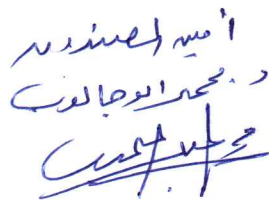 أمين الصندوق
د. محمد ابو جالوب